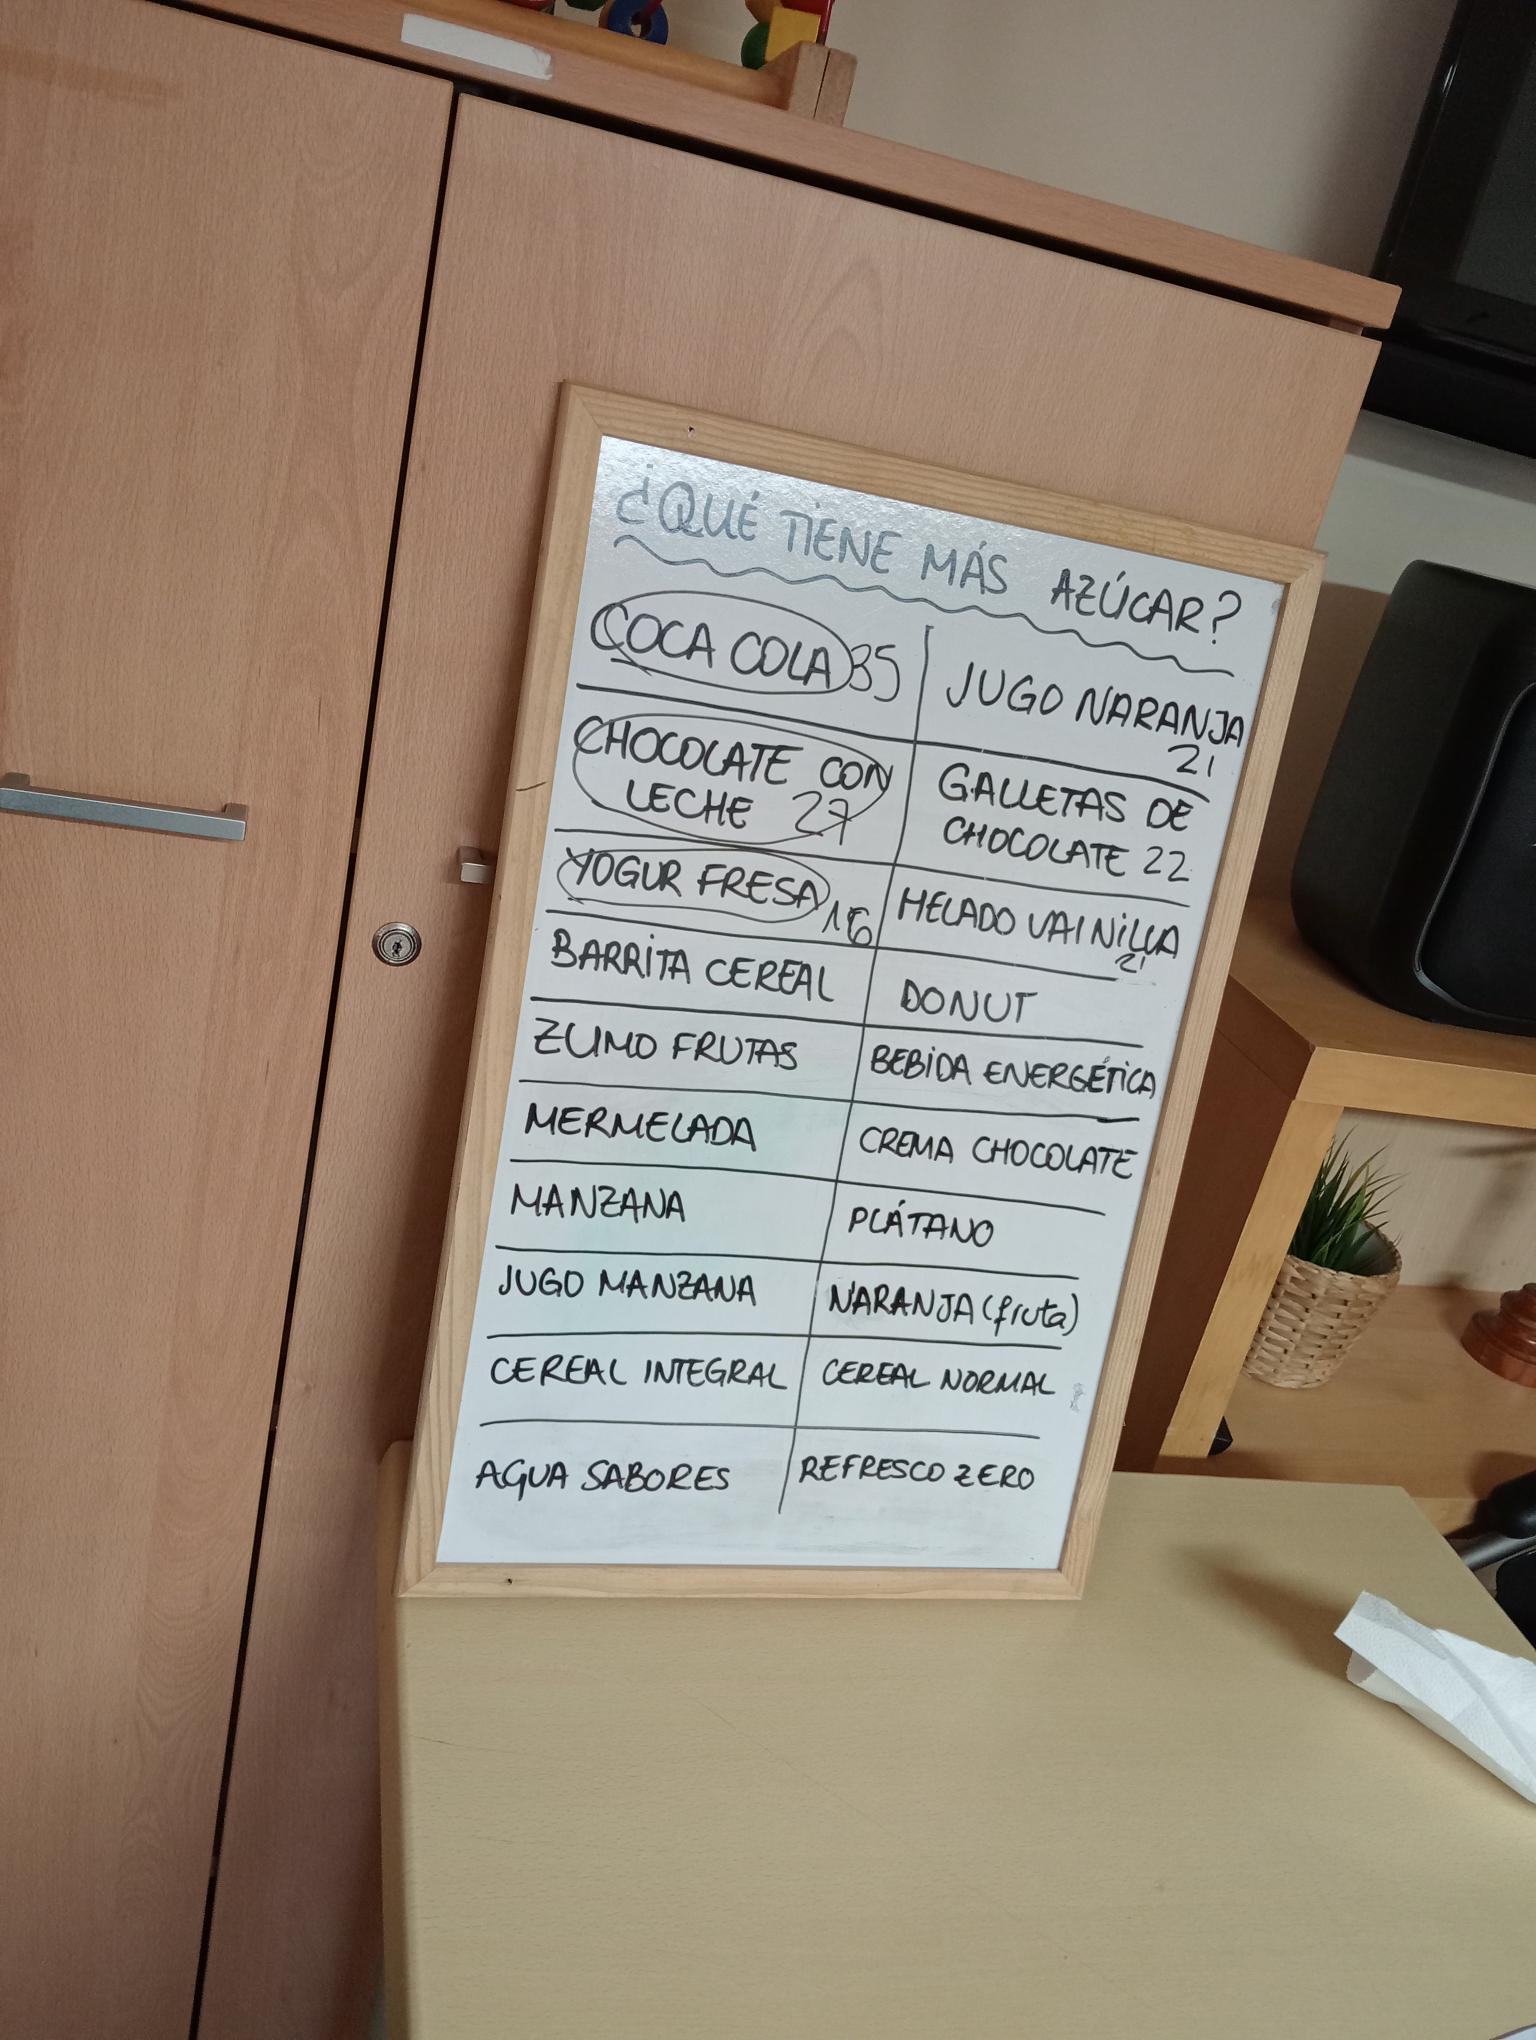 ¿QUÉ TIENE MÁS AZÚCAR?
COCA COLA 35
JUGO NARANJA
21
CHOCOLATE CON
LECHE 27
GALLETAS DE
CHOCOLATE 22
YOGUR FRESA 16
HELADO VAINILLA
21
BARRITA CEREAL
DONUT
ZUMO FRUTAS
BEBIDA ENERGÉTICA
MERMELADA
CREMA CHOCOLATE
MANZANA
PLÁTANO
JUGO MANZANA
NARANJA (fruta)
CEREAL INTEGRAL
CEREAL NORMAL
AGUA SABORES
REFRESCO ZERO